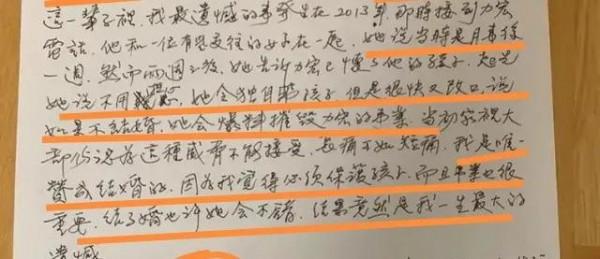 這一輩子裡,我最遺憾的事發生在2013年,那時接到力宏
電話,他和一位有過交往的女子在一起,她說當時是月事後
一週,然而兩週之後,她告訴力宏已懷了他的孩子,起先
她說不用擔心,她會獨自養孩子,但是很快又改口,說
如果不結婚,她會爆料摧毀力宏的事業,當初家裡大
部份認為這種威脅不能接受,長痛不如短痛,我是唯一
贊成結婚的,因為我覺得必須保護孩子,而且事業也很
重要,結了婚也許她會不錯,結果竟然是我一生最大的
遺憾